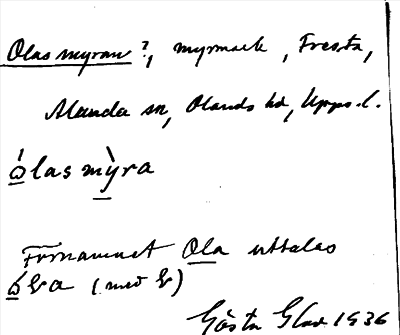 Olas myran?, myrmark, Fresta,
Almunda sn, Olands hd, Upps. l.
ólas mỳra
Förnamnet Ola uttalas
óɽa (med ɽ)
Gösta Glad 1936